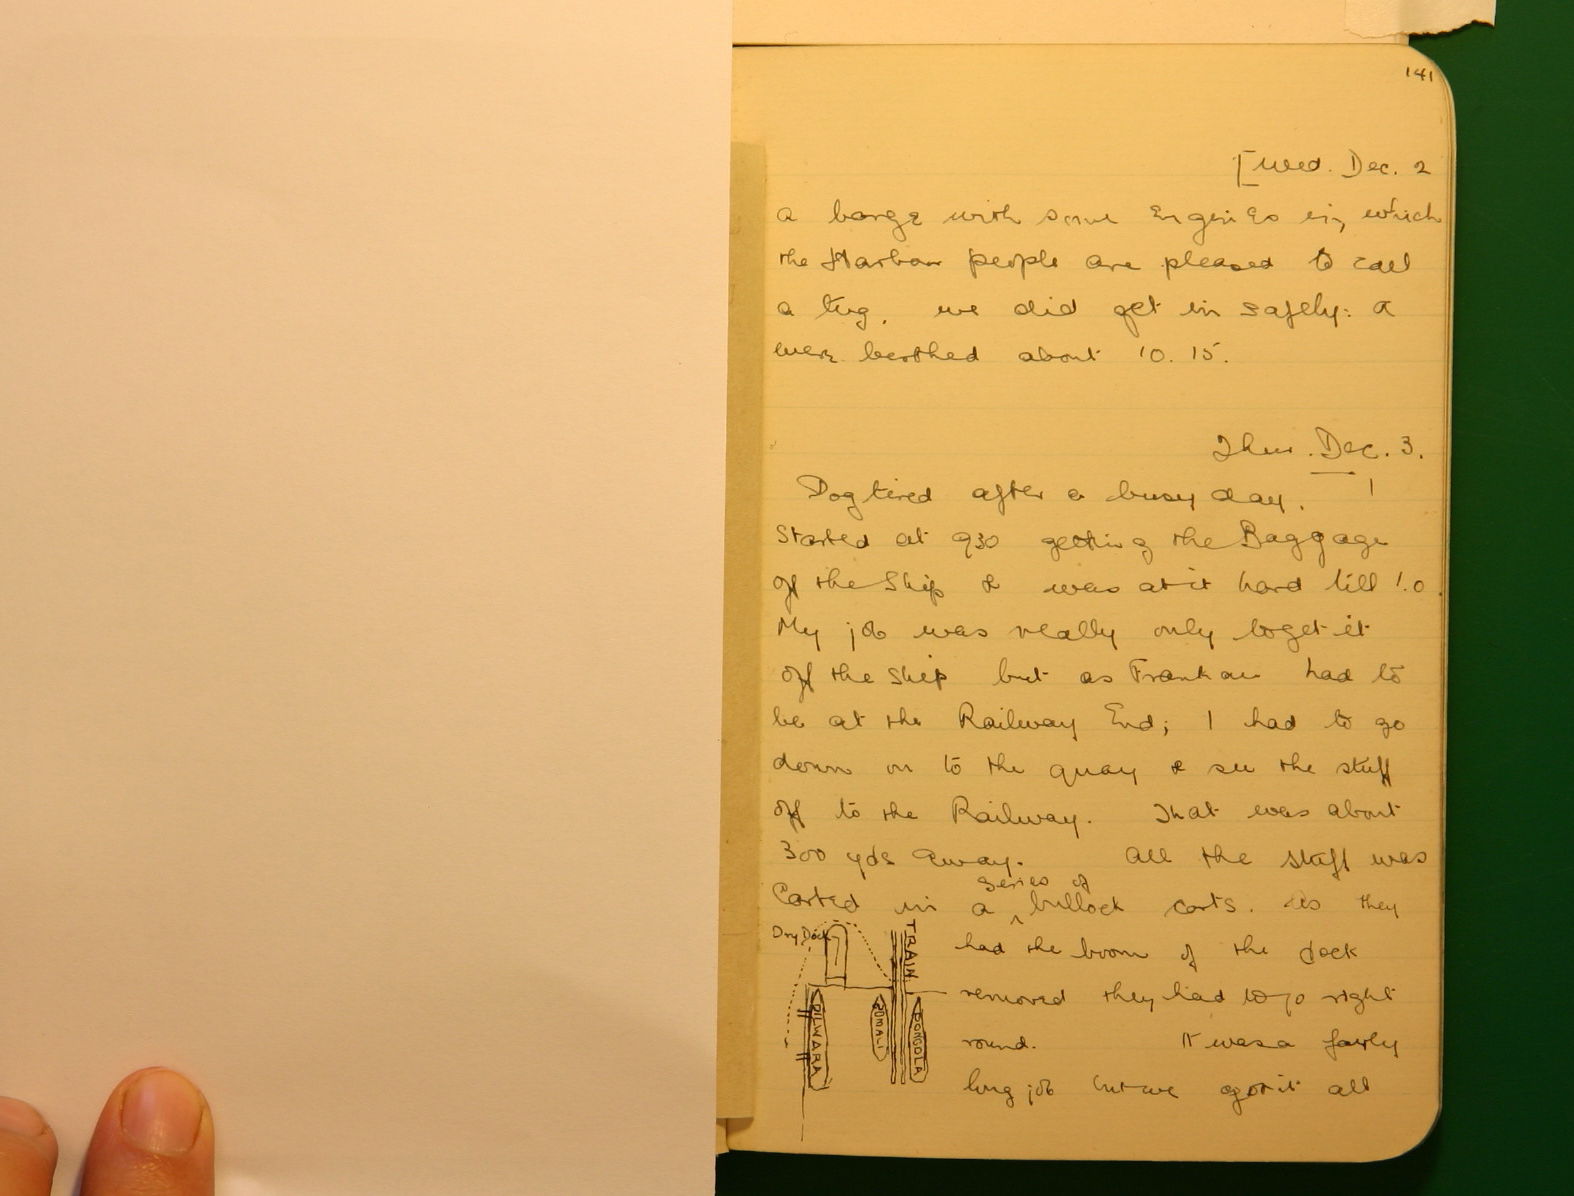 141
[Wed. Dec. 2
a barge with some Engines in, which
the Harbour people are pleased to call
a tug. we did get in safely: &
were berthed about 10.15.
Thur. Dec. 3.
Dog tired after a busy day.
Started at 930 getting the Baggage
off the Ship & was at it hard till 1.0.
My job was really only to get it
off the Ship but as Frankau had to
be at the Railway End; I had to go
down on to the quay & see the stuff
off to the Railway. That was about
300 yds away. All the stuff was
Carted in a series of bullock carts. As they
had the boom of the dock
removed they had to go right
round. It was a fairly
long job but we got it all
Dry Dock
TRAIN
DILWARA
SOMALI
DONGOLA